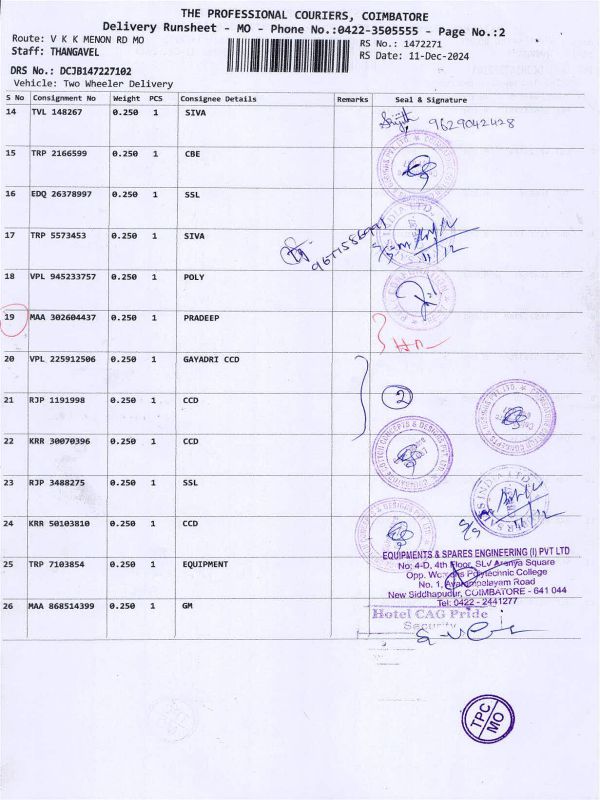 THE PROFESSIONAL COURIERS, COIMBATORE
Delivery Runsheet - MO - Phone No.:0422-3505555 - Page No.:2
Route: V K K MENON RD MO
RS No.: 1472271
Staff: THANGAVEL
RS Date: 11-Dec-2024
DRS No.: DCJB147227102
Vehicle: Two Wheeler Delivery
S No Consignment No Weight PCS Consignee Details Remarks Seal & Signature
14 TVL 148267 0.250 1 SIVA
9629042428
15 TRP 2166599 0.250 1 CBE
16 EDQ 26378997 0.250 1 SSL
17 TRP 5573453 0.250 1 SIVA
11/12
18 VPL 945233757 0.250 1 POLY
19 MAA 302604437 0.250 1 PRADEEP
20 VPL 225912506 0.250 1 GAYADRI CCD
21 RJP 1191998 0.250 1 CCD
2
22 KRR 30070396 0.250 1 CCD
23 RJP 3488275 0.250 1 SSL
24 KRR 50103810 0.250 1 CCD
EQUIPMENTS & SPARES ENGINEERING (I) PVT LTD
25 TRP 7103854 0.250 1 EQUIPMENT
No: 4-D, 4th Floor, SLV Aranya Square
Opp. Womens Polytechnic College
No. 1, Avarampalayam Road
New Siddhapudur, COIMBATORE - 641 044
Tel: 0422 - 2441277
26 MAA 868514399 0.250 1 GM
Hotel CAG Pride
Security
TPC
MO